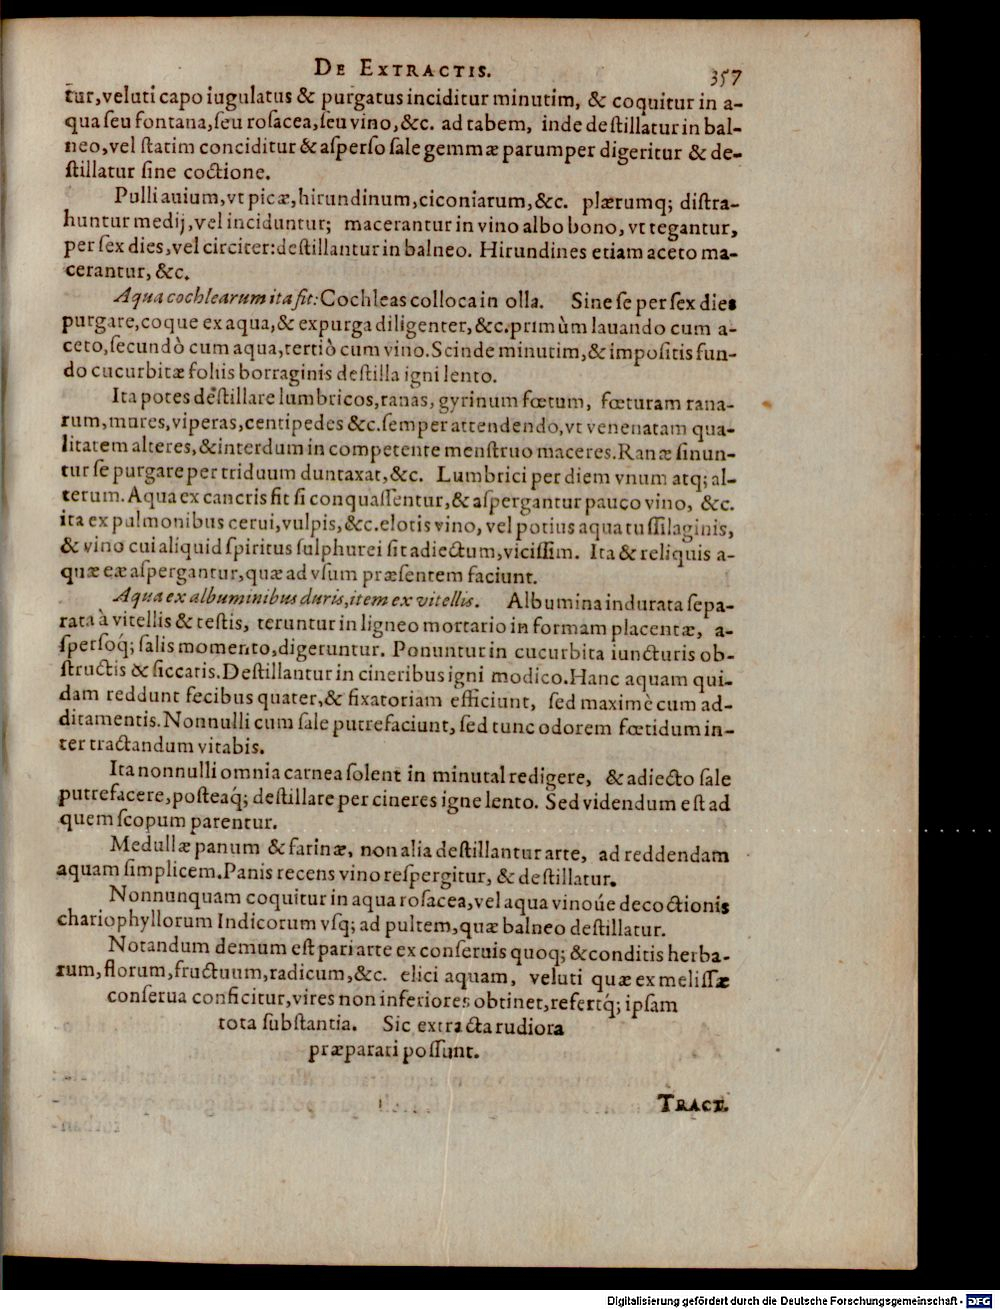 DE EXTRACTIS. 357
tur, veluti capo iugulatus & purgatus inciditur minutim, & coquitur in a-
qua seu fontana, seu rosacea, seu vino, &c. ad tabem, inde destillatur in bal-
neo, vel statim conciditur & asperso sale gemmæ parumper digeritur & de-
stillatur sine coctione.
Pulli auium, vt picæ, hirundinum, ciconiarum, &c. plærumq; distra-
huntur medij, vel inciduntur; macerantur in vino albo bono, vt tegantur,
per sex dies, vel circiter: destillantur in balneo. Hirundines etiam aceto ma-
cerantur, &c.
Aqua cochlearum ita fit: Cochleas colloca in olla. Sine se per sex dies
purgare, coque ex aqua, & expurga diligenter, &c. primùm lauando cum a-
ceto, secundò cum aqua, tertiò cum vino. Scinde minutim, & impositis fun-
do cucurbitæ foliis borraginis destilla igni lento.
Ita potes destillare lumbricos, ranas, gyrinum fœtum, fœturam rana-
rum, mures, viperas, centipedes &c. semper attendendo, vt venenatam qua-
litatem alteres, & interdum in competente menstruo maceres. Ranæ sinun-
tur se purgare per triduum duntaxat, &c. Lumbrici per diem vnum atq; al-
terum. Aqua ex cancris fit si conquassentur, & aspergantur pauco vino, &c.
ita ex pulmonibus cerui, vulpis, &c. elotis vino, vel potius aqua tussilaginis,
& vino cui aliquid spiritus sulphurei sit adiectum, vicissim. Ita & reliquis a-
quæ eæ aspergantur, quæ ad vsum præsentem faciunt.
Aqua ex albuminibus duris, item ex vitellis. Albumina indurata sepa-
rata à vitellis & testis, teruntur in ligneo mortario in formam placentæ, a-
spersoq́; salis momento, digeruntur. Ponuntur in cucurbita iuncturis ob-
structis & siccatis. Destillantur in cineribus igni modico. Hanc aquam qui-
dam reddunt fecibus quater, & fixatoriam efficiunt, sed maximè cum ad-
ditamentis. Nonnulli cum sale putrefaciunt, sed tunc odorem fœtidum in-
ter tractandum vitabis.
Ita nonnulli omnia carnea solent in minutal redigere, & adiecto sale
putrefacere, posteaq́; destillare per cineres igne lento. Sed videndum est ad
quem scopum parentur.
Medullæ panum & farinæ, non alia destillantur arte, ad reddendam
aquam simplicem. Panis recens vino respergitur, & destillatur.
Nonnunquam coquitur in aqua rosacea, vel aqua vinoúe decoctionis
chariophyllorum Indicorum vsq; ad pultem, quæ balneo destillatur.
Notandum demum est pari arte ex conseruis quoq; & conditis herba-
rum, florum, fructuum, radicum, &c. elici aquam, veluti quæ ex melissæ
conserua conficitur, vires non inferiores obtinet, refertq́; ipsam
tota substantia. Sic extracta rudiora
præparari possunt.
TRACT.
Digitalisierung gefördert durch die Deutsche Forschungsgemeinschaft - DFG